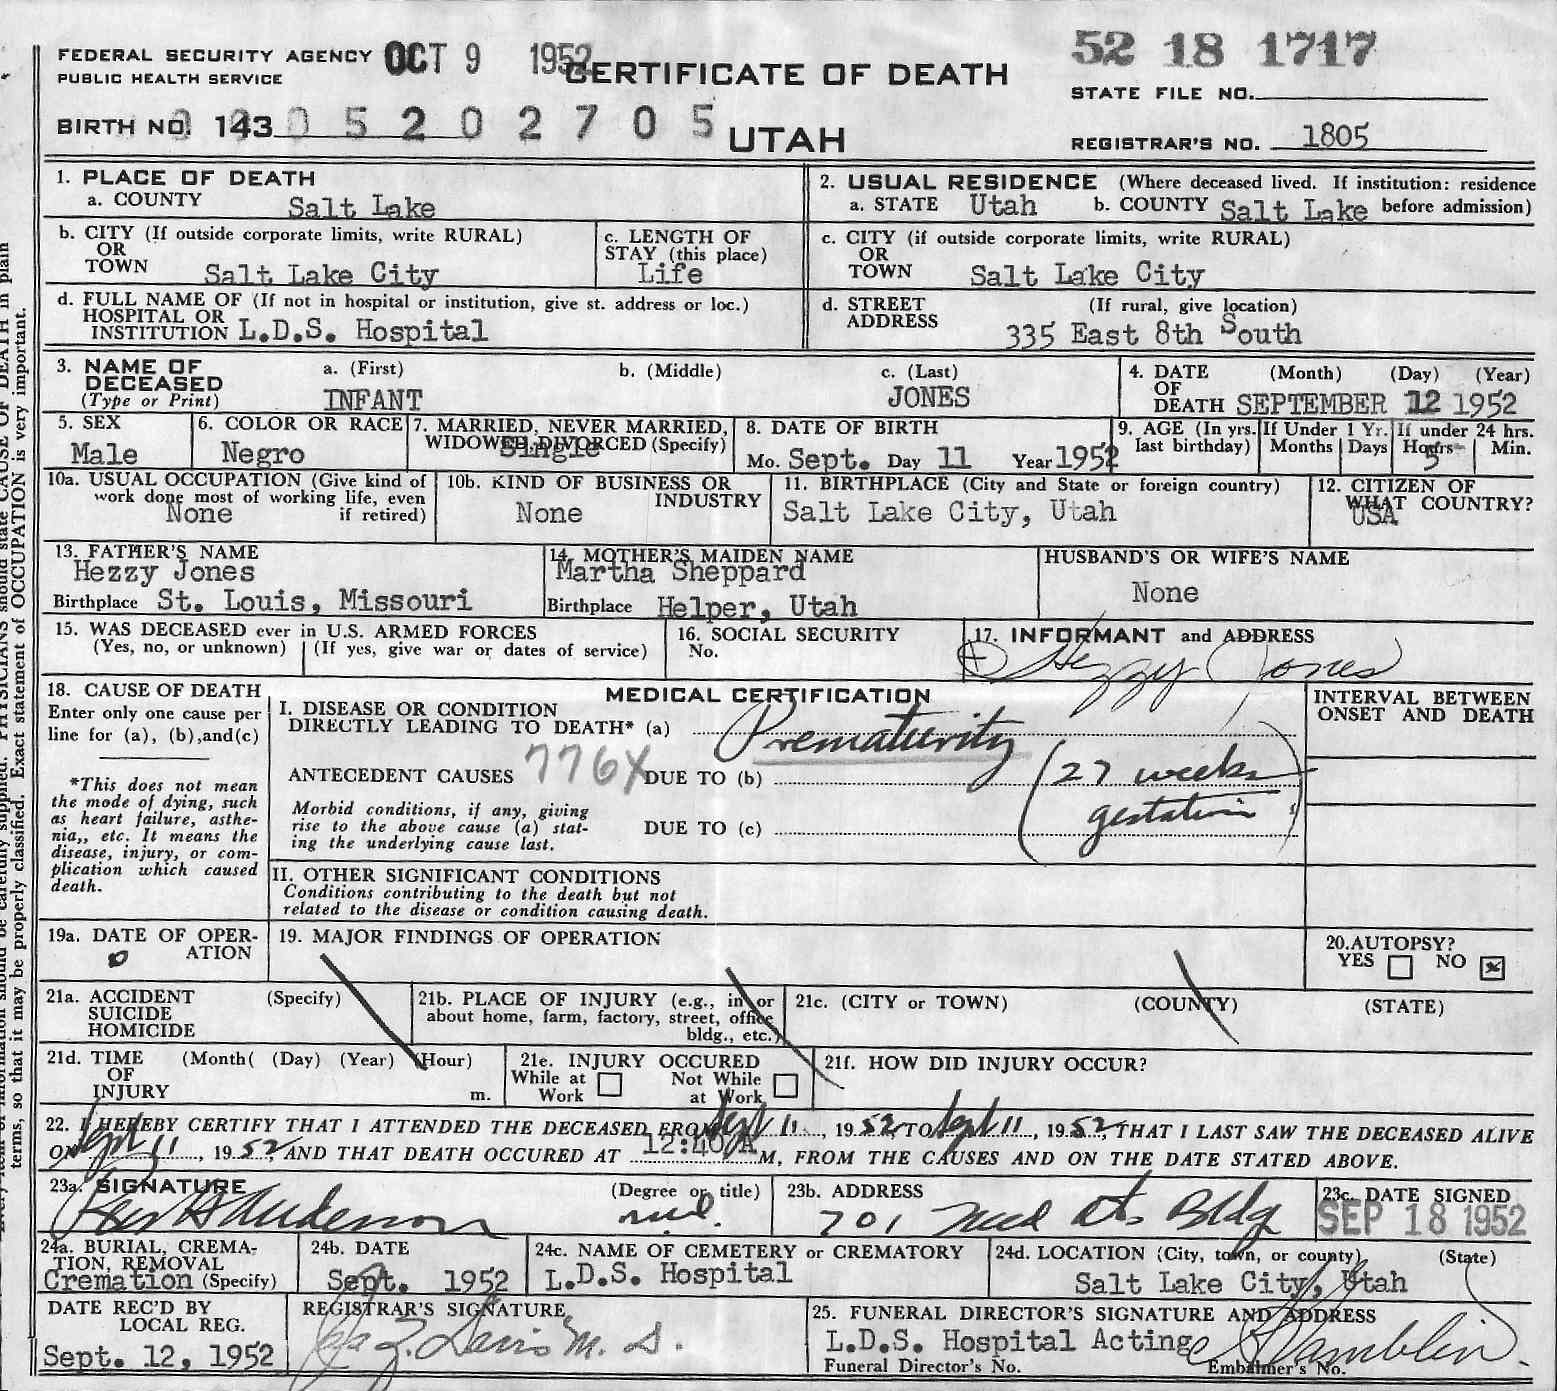 FEDERAL SECURITY AGENCY OCT 9 1952 CERTIFICATE OF DEATH 52 18 1717
PUBLIC HEALTH SERVICE
STATE FILE NO.
BIRTH NO. 143 0 5 2 0 2 7 0 5 UTAH
REGISTRAR'S NO. 1805
1. PLACE OF DEATH
a. COUNTY Salt Lake
2. USUAL RESIDENCE (Where deceased lived. If institution: residence
a. STATE Utah b. COUNTY Salt Lake before admission)
b. CITY (If outside corporate limits, write RURAL)
OR
TOWN Salt Lake City
c. LENGTH OF
STAY (this place)
Life
c. CITY (if outside corporate limits, write RURAL)
OR
TOWN Salt Lake City
d. FULL NAME OF (If not in hospital or institution, give st. address or loc.)
HOSPITAL OR
INSTITUTION L.D.S. Hospital
d. STREET (If rural, give location)
ADDRESS 335 East 8th South
3. NAME OF
DECEASED
(Type or Print)
a. (First)
INFANT
b. (Middle)
c. (Last)
JONES
4. DATE (Month) (Day) (Year)
OF
DEATH SEPTEMBER 12 1952
5. SEX
Male
6. COLOR OR RACE
Negro
7. MARRIED, NEVER MARRIED,
WIDOWED, DIVORCED (Specify)
Single
8. DATE OF BIRTH
Mo. Sept. Day 11 Year 1952
9. AGE (In yrs.
last birthday)
If Under 1 Yr.
Months Days
If under 24 hrs.
Hours Min.
5
10a. USUAL OCCUPATION (Give kind of
work done most of working life, even
None if retired)
10b. KIND OF BUSINESS OR
INDUSTRY
None
11. BIRTHPLACE (City and State or foreign country)
Salt Lake City, Utah
12. CITIZEN OF
WHAT COUNTRY?
USA
13. FATHER'S NAME
Hezzy Jones
Birthplace St. Louis, Missouri
14. MOTHER'S MAIDEN NAME
Martha Sheppard
Birthplace Helper, Utah
HUSBAND'S OR WIFE'S NAME
None
15. WAS DECEASED ever in U.S. ARMED FORCES
(Yes, no, or unknown) (If yes, give war or dates of service)
16. SOCIAL SECURITY
No.
17. INFORMANT and ADDRESS
Hezzy Jones
18. CAUSE OF DEATH
Enter only one cause per
line for (a), (b), and (c)
*This does not mean
the mode of dying, such
as heart failure, asthe-
nia,, etc. It means the
disease, injury, or com-
plication which caused
death.
MEDICAL CERTIFICATION
I. DISEASE OR CONDITION
DIRECTLY LEADING TO DEATH* (a) Prematurity
ANTECEDENT CAUSES 776X DUE TO (b) (27 weeks
Morbid conditions, if any, giving
rise to the above cause (a) stat-
ing the underlying cause last.
DUE TO (c) gestation)
II. OTHER SIGNIFICANT CONDITIONS
Conditions contributing to the death but not
related to the disease or condition causing death.
INTERVAL BETWEEN
ONSET AND DEATH
19a. DATE OF OPER-
ATION
0
19. MAJOR FINDINGS OF OPERATION
20. AUTOPSY?
YES NO
21a. ACCIDENT (Specify)
SUICIDE
HOMICIDE
21b. PLACE OF INJURY (e.g., in or
about home, farm, factory, street, office
bldg., etc.)
21c. (CITY or TOWN) (COUNTY) (STATE)
21d. TIME (Month( (Day) (Year) (Hour)
OF
INJURY m.
21e. INJURY OCCURED
While at Work
Not While at Work
21f. HOW DID INJURY OCCUR?
22. I HEREBY CERTIFY THAT I ATTENDED THE DECEASED FROM Sept 11, 1952, TO Sept 11, 1952, THAT I LAST SAW THE DECEASED ALIVE
ON Sept 11, 1952, AND THAT DEATH OCCURED AT 12:40 A M, FROM THE CAUSES AND ON THE DATE STATED ABOVE.
23a. SIGNATURE (Degree or title)
Anderson m.d.
23b. ADDRESS
701 Med Arts Bldg
23c. DATE SIGNED
SEP 18 1952
24a. BURIAL, CREMA-
TION, REMOVAL
Cremation (Specify)
24b. DATE
Sept. 1952
24c. NAME OF CEMETERY or CREMATORY
L.D.S. Hospital
24d. LOCATION (City, town, or county) (State)
Salt Lake City, Utah
DATE REC'D BY
LOCAL REG.
Sept. 12, 1952
REGISTRAR'S SIGNATURE
M. D.
25. FUNERAL DIRECTOR'S SIGNATURE AND ADDRESS
L.D.S. Hospital Acting
Funeral Director's No. Embalmer's No.